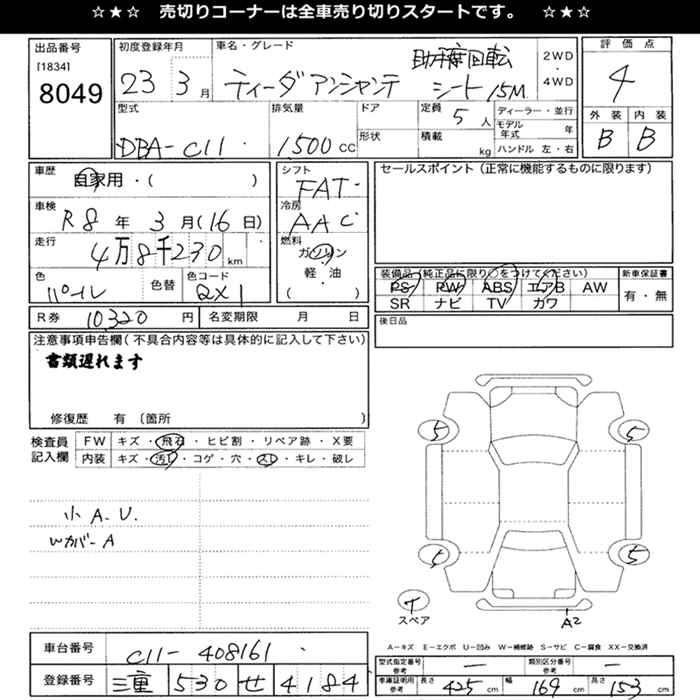 ☆★☆ 売切りコーナーは全車売り切りスタートです。 ☆★☆
出品番号
[1834]
8049
初度登録年月
23 3月
車名・グレード
助手席回転
ティーダアンシャンテ シート 15M
2WD
・
4WD
評価点
4
外装 内装
B B
型式
DBA-C11
排気量
1,500 CC
ドア
形状
定員
5 人
積載
kg
ディーラー・並行
モデル年式 年
ハンドル 左・右
車歴
自家用・( )
車検
R8年 3月(16日)
走行
4万8千230 km
色
パール
色替
色コード
QX1
シフト
FAT
冷房
AAC
燃料
ガソリン
軽・油
( )
セールスポイント(正常に機能するものに限ります)
装備品(純正品に限り○をつけてください)
PS PW ABS エアB AW
SR ナビ TV カワ
新車保証書
有・無
R券 10,320 円
名変期限 月 日
後日品
注意事項申告欄(不具合内容等は具体的に記入して下さい)
書類遅れます
修復歴 有〔箇所 〕
検査員
記入欄
FW キズ・飛石・ヒビ割・リペア跡・X要
内装 キズ・汚れ・コゲ・穴・スレ・キレ・破レ
小A-U.
Wカバ-A
5 5
5 5
T
スペア
A2
A-キズ E-エクボ U-凹み W-補修跡 S-サビ C-腐食 XX-交換済
車台番号
C11-408161
登録番号
三重 530 せ 4184
型式指定番号
参考
—
類別区分番号
参考
—
車庫証明用
参考
長さ 425 cm
幅 169 cm
高さ 153 cm